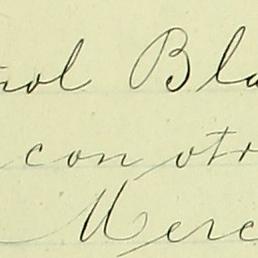 nol Bla
con otr
Merc